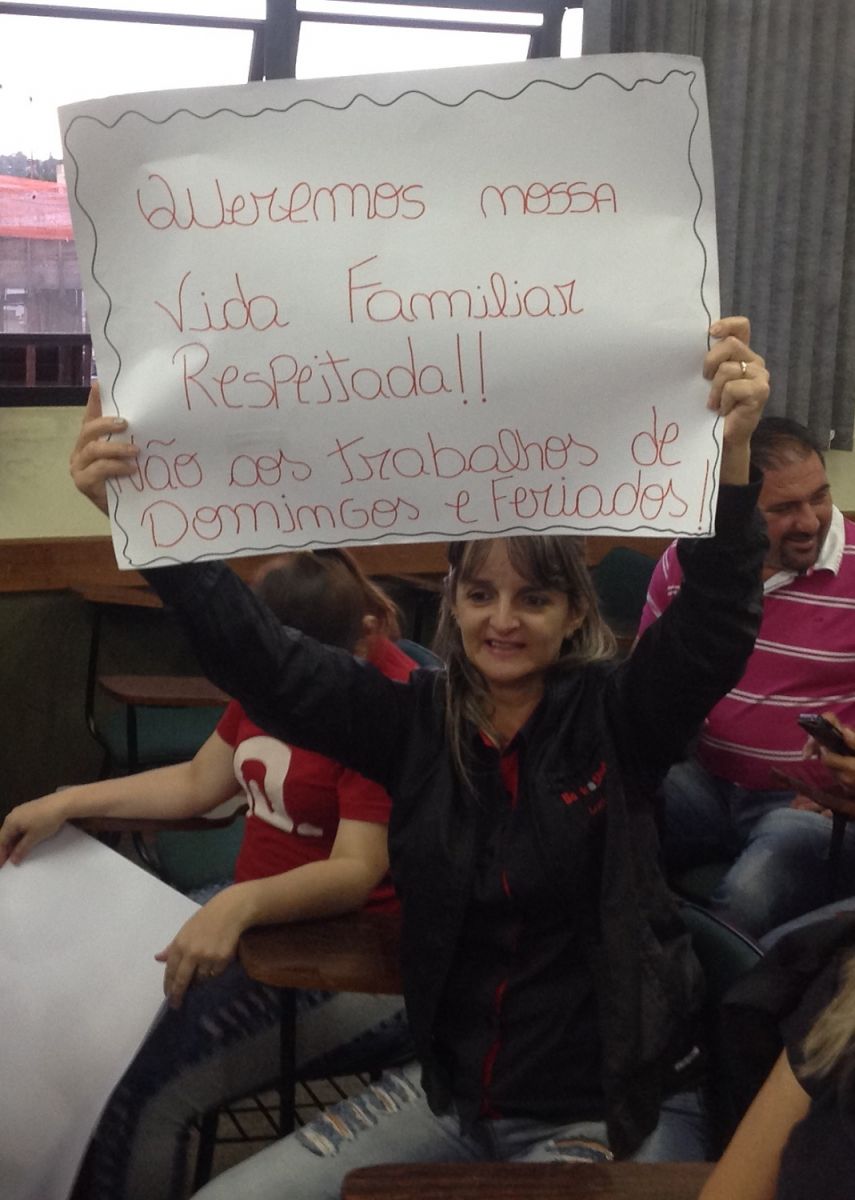 Queremos nossa
Vida Familiar
Respeitada!!
Não aos trabalhos de
Domingos e Feriados!